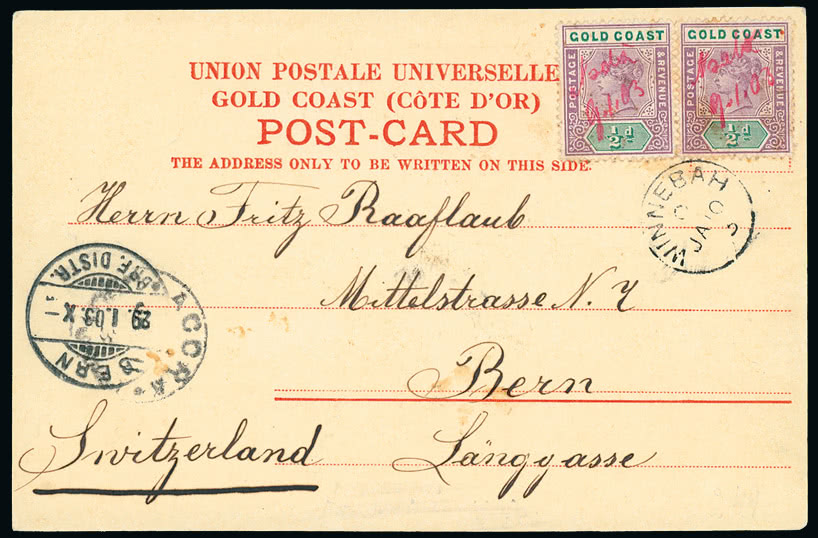 GOLD COAST
POSTAGE & REVENUE
½d
GOLD COAST
POSTAGE & REVENUE
½d
9.1.03
9.1.03
UNION POSTALE UNIVERSELLE
GOLD COAST (CÔTE D'OR)
POST-CARD
THE ADDRESS ONLY TO BE WRITTEN ON THIS SIDE.
WINNEBAH
C
JA 10
3
Herrn Fritz Raaflaub
Mittelstrasse N. 7
Bern
Switzerland
Länggasse
BERN
BRF. DISTR.
29. I. 03. X
ACCRA